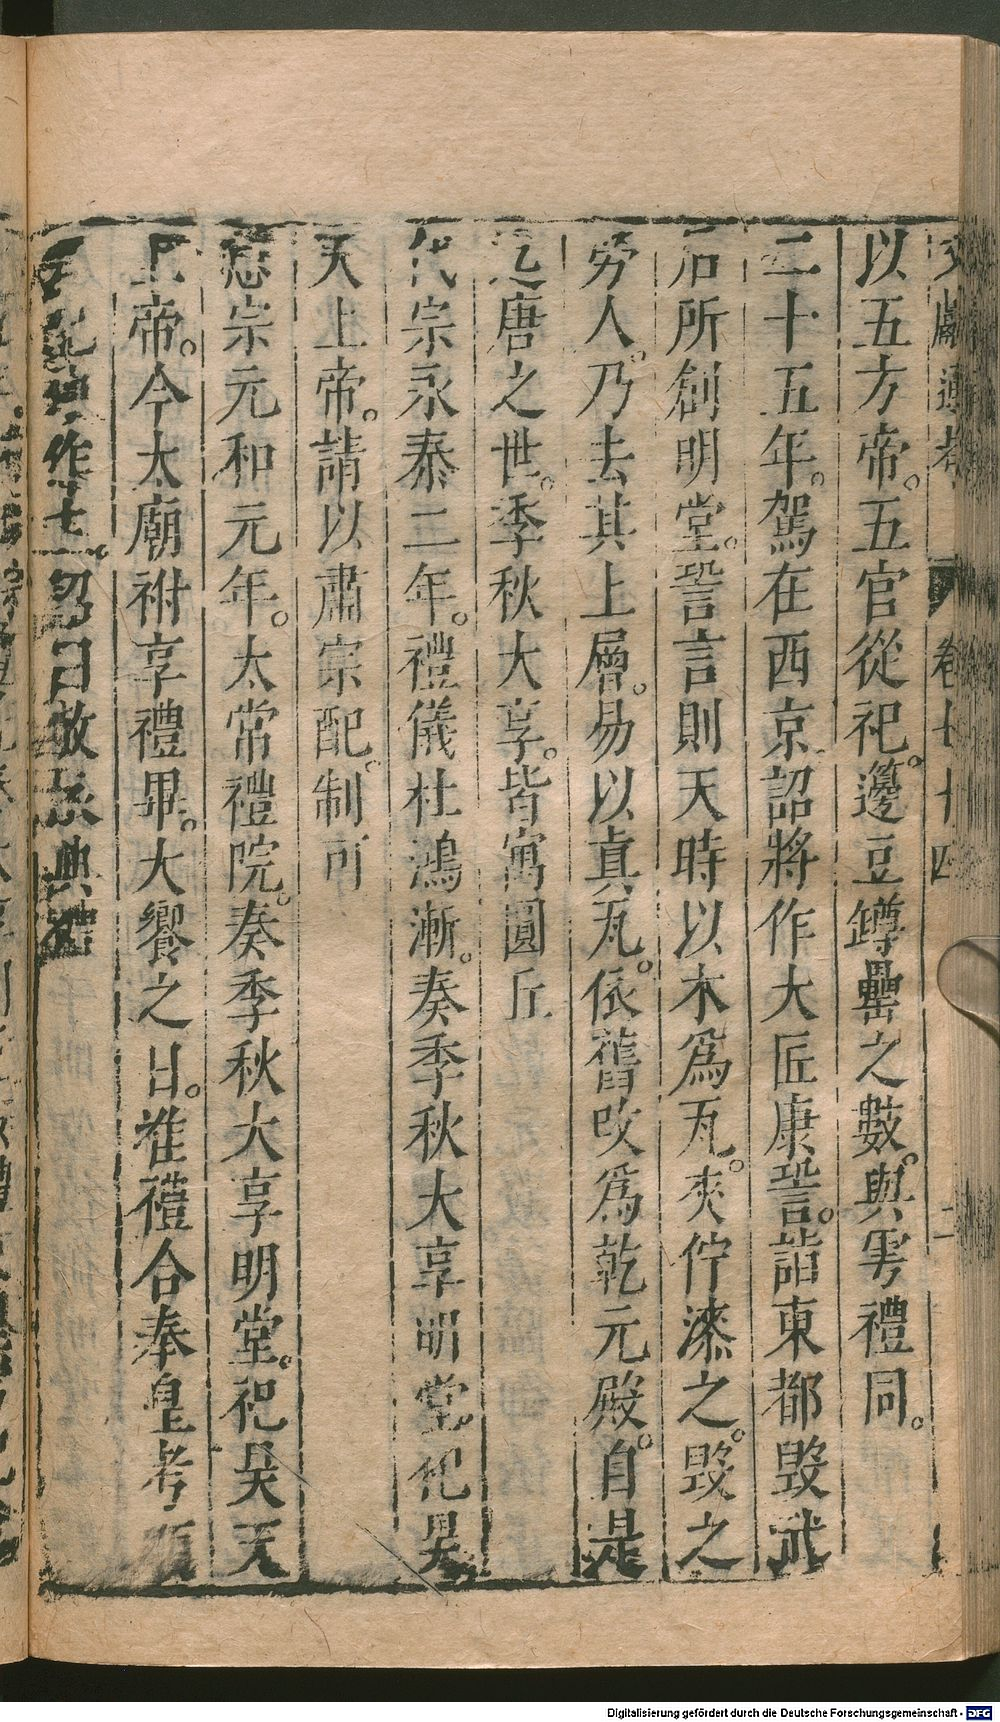 文獻通考 卷七十四 二
以五方帝。五官從祀。籩豆罇罍之數。與雩禮同。
二十五年。駕在西京詔將作大匠康𧫷。詣東都毀武
后所創明堂。𧫷言則天時以木爲瓦。夾紵漆之。毀之
勞人。乃去其上層。易以真瓦。依舊改爲乾元殿。自是
迄唐之世。季秋大享。皆寓圓丘
代宗永泰二年。禮儀杜鴻漸。奏季秋大享明堂。祀昊
天上帝。請以肅宗配。制可
憲宗元和元年。太常禮院。奏季秋大享明堂。祀昊天
上帝。今太廟祔享禮畢。大饗之日。准禮合奉皇考順
作主。詔曰敬依典禮
Digitalisierung gefördert durch die Deutsche Forschungsgemeinschaft - DFG